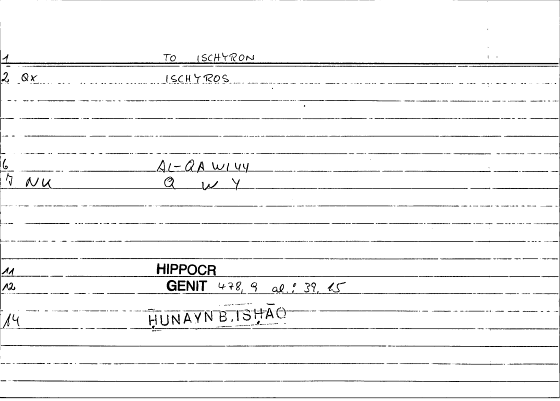 1 TO ISCHYRON
2 Qx ISCHYROS
6 AL-QAWIYY
7 NK Q W Y
11 HIPPOCR
12 GENIT 478, 9 al.: 39, 15
14 ḤUNAYN B. ISḤĀQ